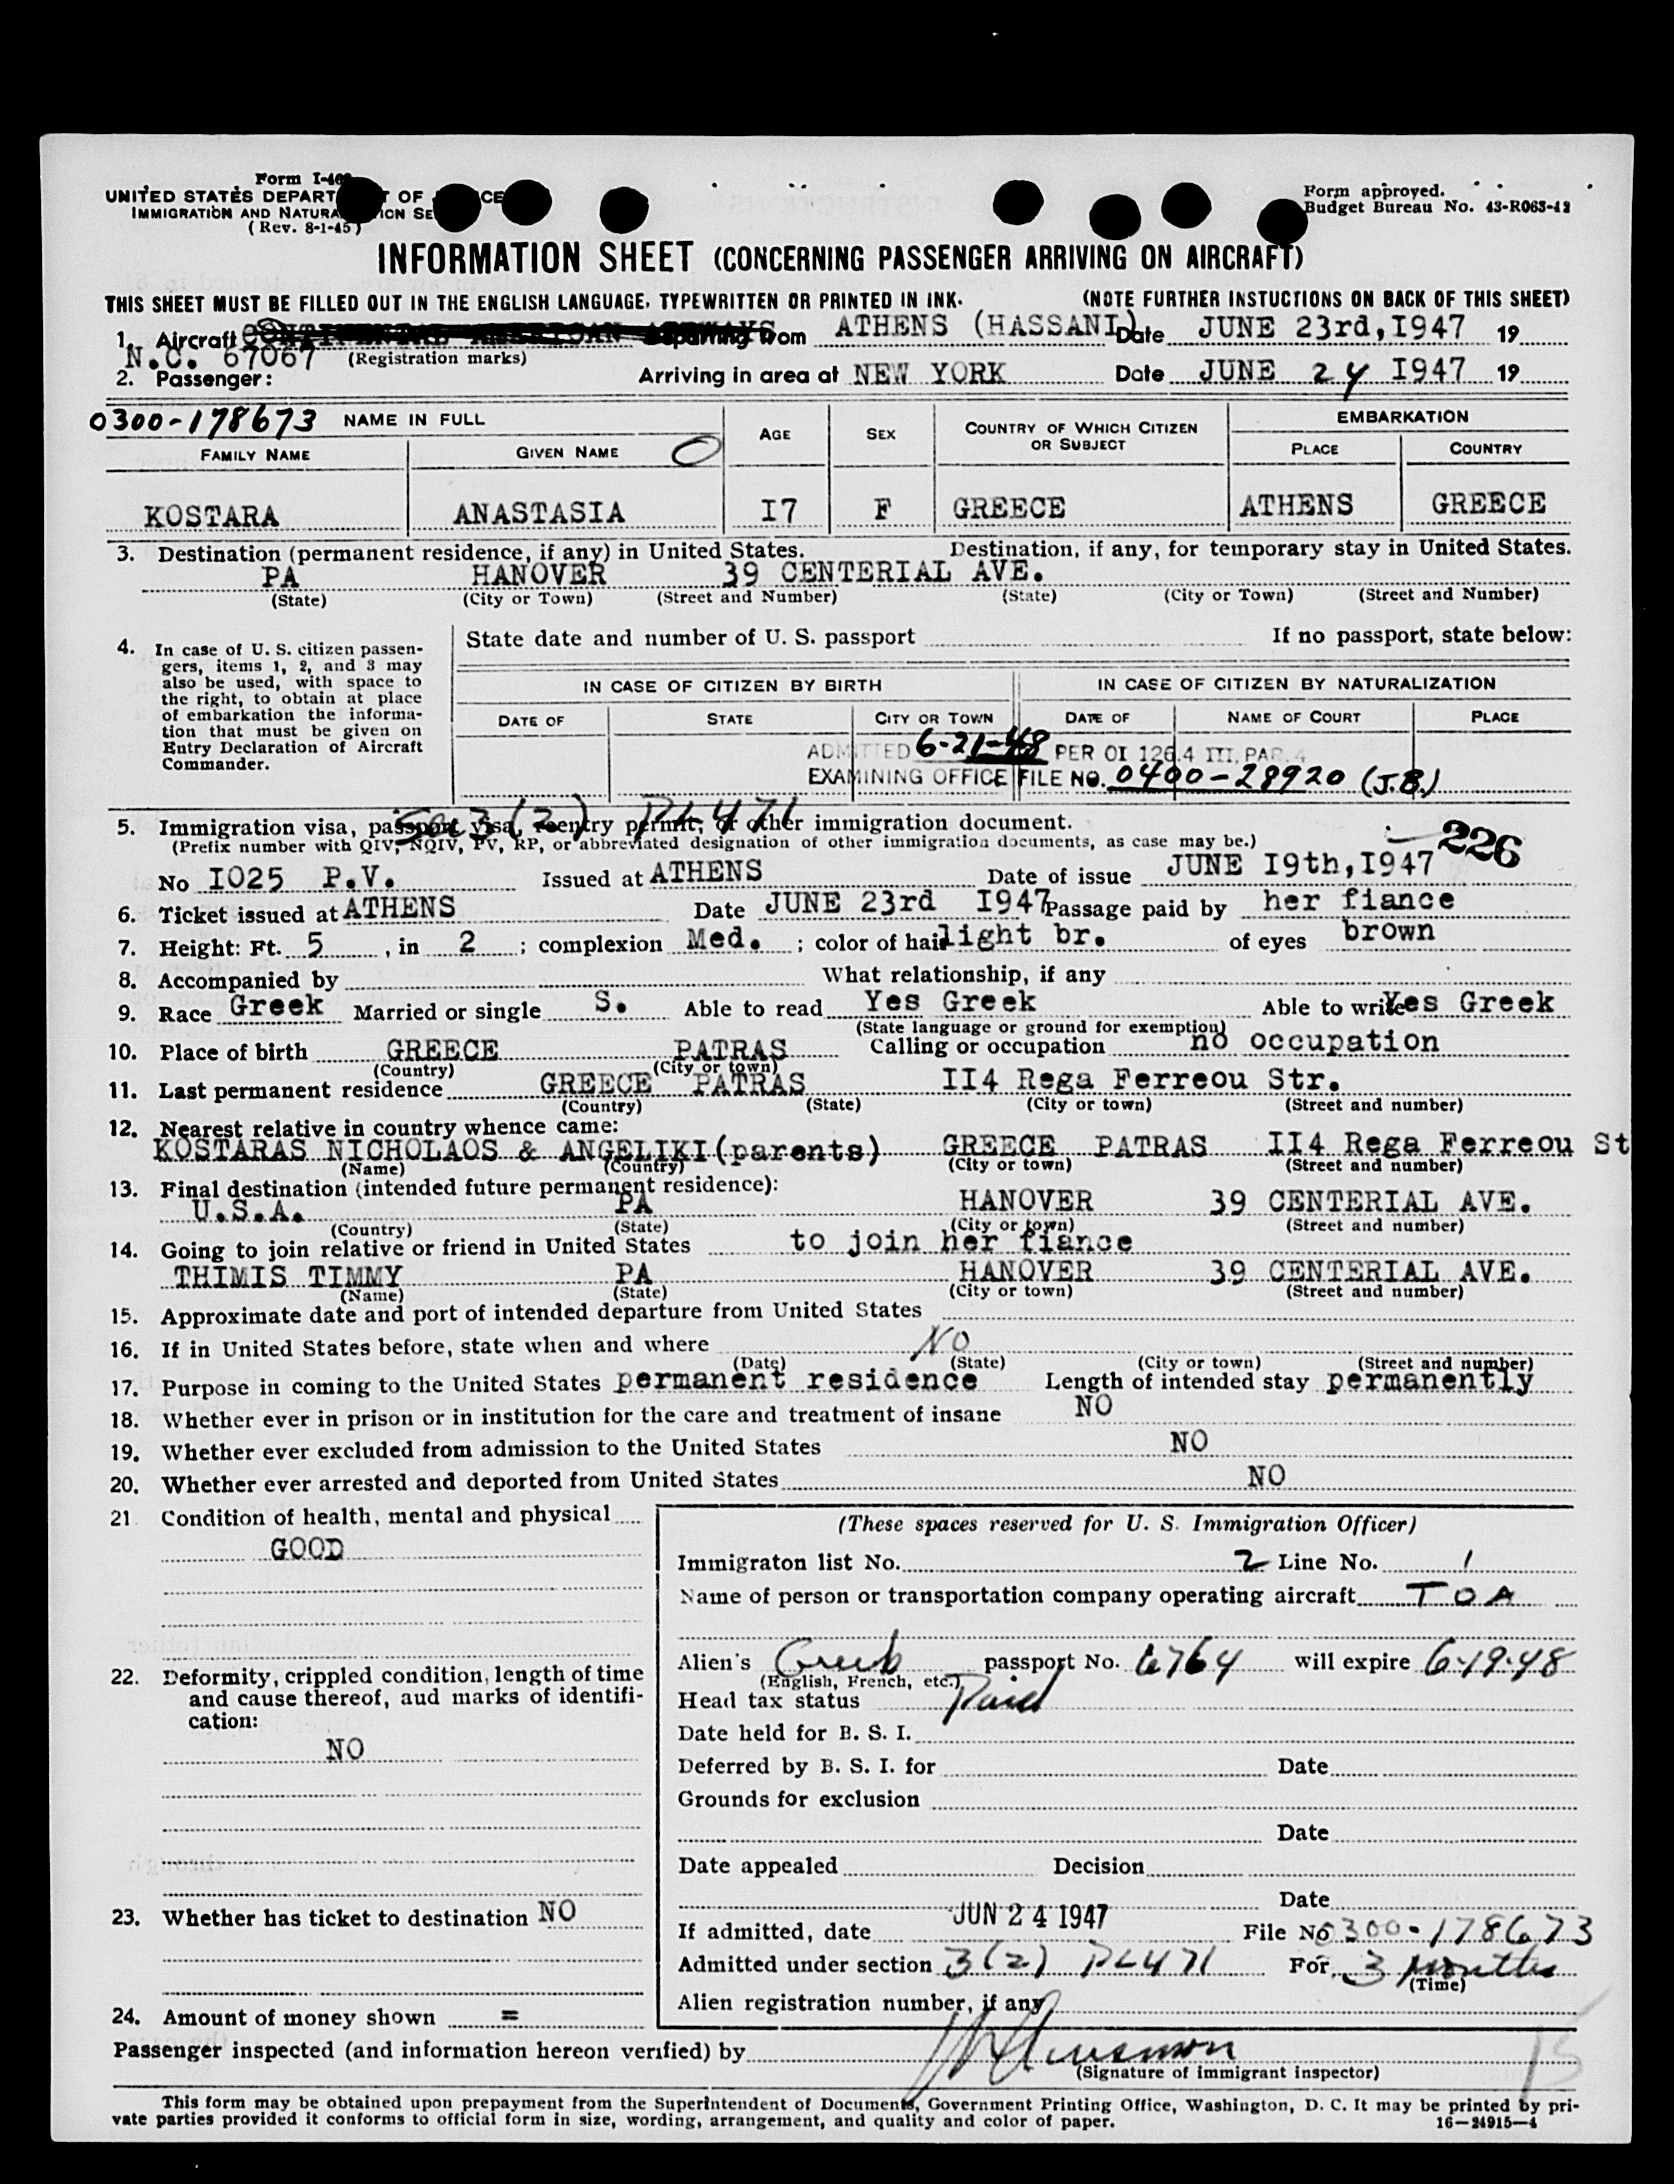 Form I-46
UNITED STATES DEPART OF CE
IMMIGRATION AND NATURA ION SE
(Rev. 8-1-45)
Form approved.
Budget Bureau No. 43-R063-42
INFORMATION SHEET (CONCERNING PASSENGER ARRIVING ON AIRCRAFT)
THIS SHEET MUST BE FILLED OUT IN THE ENGLISH LANGUAGE, TYPEWRITTEN OR PRINTED IN INK. (NOTE FURTHER INSTUCTIONS ON BACK OF THIS SHEET)
1. Aircraft from ATHENS (HASSANI) Date JUNE 23rd,I947 19
N.C. 67067 (Registration marks)
2. Passenger: Arriving in area at NEW YORK Date JUNE 24 I947 19
0300-178673 NAME IN FULL AGE SEX COUNTRY OF WHICH CITIZEN OR SUBJECT EMBARKATION
FAMILY NAME GIVEN NAME PLACE COUNTRY
KOSTARA ANASTASIA I7 F GREECE ATHENS GREECE
3. Destination (permanent residence, if any) in United States. Destination, if any, for temporary stay in United States.
PA HANOVER 39 CENTERIAL AVE.
(State) (City or Town) (Street and Number) (State) (City or Town) (Street and Number)
4. In case of U. S. citizen passen-
gers, items 1, 2, and 3 may
also be used, with space to
the right, to obtain at place
of embarkation the informa-
tion that must be given on
Entry Declaration of Aircraft
Commander.
State date and number of U. S. passport If no passport, state below:
IN CASE OF CITIZEN BY BIRTH IN CASE OF CITIZEN BY NATURALIZATION
DATE OF STATE CITY OR TOWN DATE OF NAME OF COURT PLACE
ADMITTED 6-21-48 PER OI 126.4 III, PAR. 4
EXAMINING OFFICE FILE NO. 0400-28920 (J.B.)
Sec 3(2) PL 471
5. Immigration visa, passport visa, reentry permit, or other immigration document.
(Prefix number with QIV, NQIV, PV, RP, or abbreviated designation of other immigration documents, as case may be.) 226
No I025 P.V. Issued at ATHENS Date of issue JUNE I9th,I947
6. Ticket issued at ATHENS Date JUNE 23rd I947 Passage paid by her fiance
7. Height: Ft. 5 , in 2 ; complexion Med. ; color of hair light br. of eyes brown
8. Accompanied by What relationship, if any
9. Race Greek Married or single S. Able to read Yes Greek Able to write Yes Greek
(State language or ground for exemption)
10. Place of birth GREECE PATRAS Calling or occupation no occupation
(Country) (City or town)
11. Last permanent residence GREECE PATRAS II4 Rega Ferreou Str.
(Country) (State) (City or town) (Street and number)
12. Nearest relative in country whence came:
KOSTARAS NICHOLAOS & ANGELIKI(parents) GREECE PATRAS II4 Rega Ferreou St
(Name) (Country) (City or town) (Street and number)
13. Final destination (intended future permanent residence):
U.S.A. PA HANOVER 39 CENTERIAL AVE.
(Country) (State) (City or town) (Street and number)
14. Going to join relative or friend in United States to join her fiance
THIMIS TIMMY PA HANOVER 39 CENTERIAL AVE.
(Name) (State) (City or town) (Street and number)
15. Approximate date and port of intended departure from United States
16. If in United States before, state when and where NO
(Date) (State) (City or town) (Street and number)
17. Purpose in coming to the United States permanent residence Length of intended stay permanently
18. Whether ever in prison or in institution for the care and treatment of insane NO
19. Whether ever excluded from admission to the United States NO
20. Whether ever arrested and deported from United States NO
21. Condition of health, mental and physical
GOOD
22. Deformity, crippled condition, length of time
and cause thereof, aud marks of identifi-
cation:
NO
23. Whether has ticket to destination NO
24. Amount of money shown =
(These spaces reserved for U. S. Immigration Officer)
Immigraton list No. 2 Line No. 1
Name of person or transportation company operating aircraft TOA
Alien's Greek passport No. 6764 will expire 6-19-48
(English, French, etc.)
Head tax status Paid
Date held for B. S. I.
Deferred by B. S. I. for Date
Grounds for exclusion
Date
Date appealed Decision
Date
If admitted, date JUN 24 1947 File No 0300-178673
Admitted under section 3(2) PL471 For 3 Months
(Time)
Alien registration number, if any
Passenger inspected (and information hereon verified) by
(Signature of immigrant inspector)
15
This form may be obtained upon prepayment from the Superintendent of Documents, Government Printing Office, Washington, D. C. It may be printed by pri-
vate parties provided it conforms to official form in size, wording, arrangement, and quality and color of paper. 16—24915-4